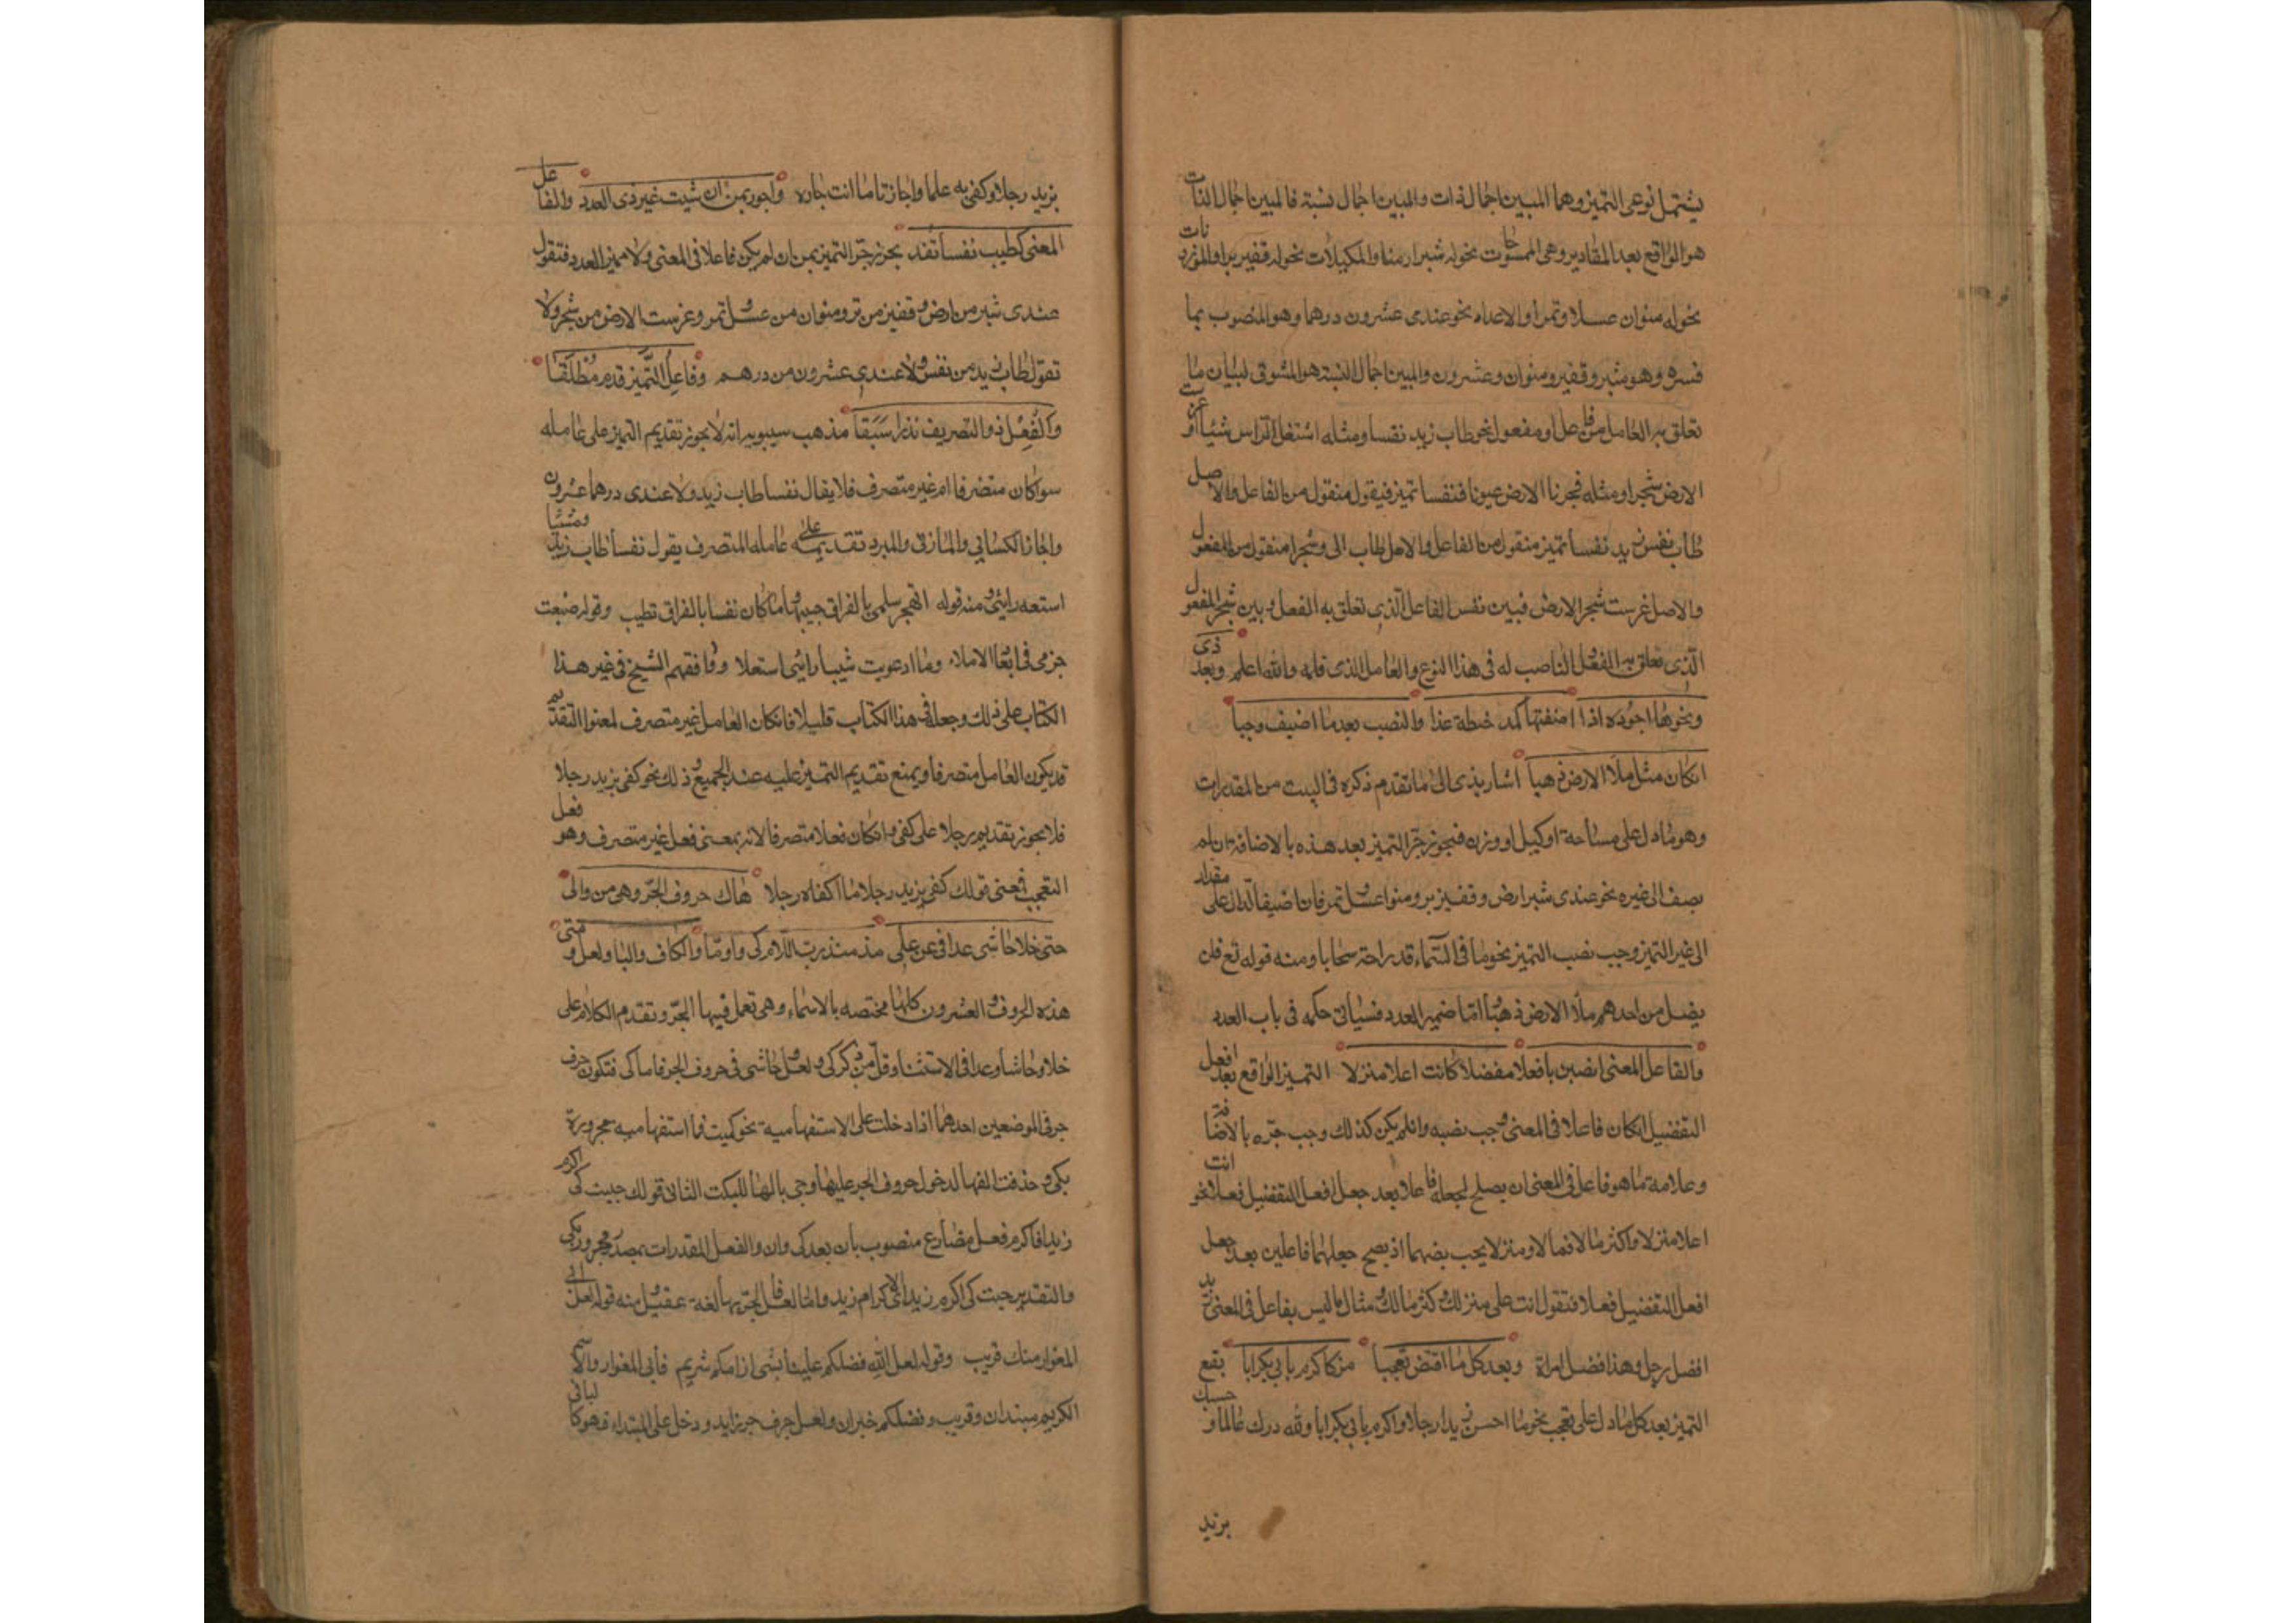 يشتمل نوعى التميز وهما المبين اجمال ذات والمبين اجمال نسبة فالمبين اجمال الذات
هو الواقع بعد المقادير وهى الممسوحات نحو له شبر ارضا والمكيلات نحو له قفيز برا والموزونات
نحو له منوان عسلا وتمرا والاعداد نحو عندى عشرون درهما وهو المنصوب بما
فسره وهو شبر وقفيز ومنوان وعشرون والمبين اجمال النسبة هو المسوق لبيان ما
تعلق به العامل من فاعل او مفعول نحو طاب زيد نفسا ومثله اشتعل الراس شيبا او غرست
الارض شجرا ومثله فجرنا الارض عيونا فنفسا تميز فيقول منقول من الفاعل والاصل
طاب نفس زيد نفسا تميز منقول من الفاعل والاصل طاب الى وشجرا منقول من المفعول
والاصل غرست شجر الارض فبين نفس الفاعل الذى تعلق به الفعل وبين شجر المفعول
الذى تعلق به الفعل الناصب له فى هذا النوع والعامل الذى قبله والله اعلم وبعد ذى
ونحوها اجرره اذا اضفتها كمد حنطة غذا والنصب بعد ما اضيف وجبا
انكان مثل ملأ الارض ذهبا اشار بذى الى ما تقدم ذكره فى البيت من المقدرات
وهو ما دل على مساحة او كيل او وزن فيجوز جر التميز بعد هذه بالاضافة ان لم
يضف الى غيره نحو عندى شبر ارض وقفيز بر ومنوا عسل وتمر فان اضيف الدال على مقدار
الى غير التميز وجب نصب التميز نحو ما فى السماء قدر راحة سحابا ومنه قوله تع فلن
يقبل من احدهم ملأ الارض ذهبا واما ضمير العدد فسياتى حكمه فى باب العدد
والفاعل المعنى انصبن بافعلا مفضلا كانت اعلا منزلا التميز الواقع بعد افعل
التفضيل انكان فاعلا فى المعنى وجب نصبه وان لم يكن كذلك وجب جره بالاضافة
وعلامة ما هو فاعل فى المعنى ان يصلح لجعله فاعلا بعد جعل افعل التفضيل فعلا نحو انت
اعلا منزلا واكثر مالا فمالا ومنزلا يجب نصبهما اذ يصح جعلهما فاعلين بعد جعل
افعل التفضيل فعلا فتقول انت على منزلك وكثر مالك ومثال ما ليس بفاعل فى المعنى زيد
افضل رجل وهذا فضل امراة وبعد كل ما اقتضى تعجبا ميز كاكرم بابى بكر ابا يقع
التميز بعد كل ما دل على تعجب نحو ما احسن زيدا رجلا واكرم بابى بكر ابا ولله درك عالما وحسبك
بزيد
بزيد رجلا وكفى به علما واجازتا ما انت جاره واجرر بمن ان شيت غير ذى العدد والفاعل
المعنى كطب نفسا تفد يجوز جر التميز بمن ان لم يكن فاعلا فى المعنى ولا مميزا لعدد فتقول
عندى شبر من ارض وقفيز من بر ومنوان من عسل وتمر وغرست الارض من شجر ولا
تقول طاب زيد من نفس ولا عندى عشرون من درهم وفاعل التميز قدم مطلقا
والفعل ذو التصريف نذرا سبقا مذهب سيبويه انه لا يجوز تقديم التميز على عامله
سوا كان متصرفا ام غير متصرف فلا يقال نفسا طاب زيد ولا عندى درهما عشرون
واجاز الكسائى والمازنى والمبرد تقديمه على عامله المتصرف يقول نفسا طاب زيد وشيبا
استعد رايى ومنه قوله اتهجر سلمى بالفراق حبيبها وما كان نفسا بالفراق تطيب وقوله ضيعت
حزمى فى ابعادى الاملا وما ارعويت شيبا راسى اشتعلا ووافقهم الشيخ فى غير هذا
الكتاب على ذلك وجعله فى هذا الكتاب قليلا فانكان العامل غير متصرف لمعنوا التقديم
قد يكون العامل متصرفا ويمنع تقديم التميز عليه عند الجميع وذلك نحو كفى بزيد رجلا
فلا يجوز تقديم رجلا على كفى وانكان فعلا متصرفا لانه بمعنى فعل غير متصرف وهو فعل
التعجب فمعنى قولك كفى بزيد رجلا ما اكفاه رجلا هاك حروف الجر وهى من والى
حتى خلا حاشى عدا فى عن على مذ منذ رب اللام كى واو وتا والكاف والبا ولعل ومتى
هذه الحروف العشرون كلها مختصه بالاسماء وهى تعمل فيها الجر وتقدم الكلام على
خلا وحاشا وعدا فى الاستثنا وقل من ذكر كى ولعل وحاشى فى حروف الجر فاما كى فتكون حرف
جر فى الموضعين احدهما اذا دخلت على ما الاستفهامية نحو كيمت فما استفهامية مجرورة
بكى وحذفت الفها لدخول حروف الجر عليها وجى بالها للسكت الثانى قولك جيت كى اكرم
زيدا فاكرم فعل مضارع منصوب بان بعد كى وان والفعل المقدرات بمصدر مجرور بكى
والتقدير جيت كى اكرم زيدا اى لاكرام زيد واما لعل فالجر بها لغة عقيل ومنه قوله لعل ابى
المغوار منك قريب وقوله لعل الله فضلكم علينا بشى ان امكم شريم فابى المغوار والاسم
الكريم مبتدان وقريب وفضلكم خبران ولعل حرف جر زايد ودخل على المبتداء فهو كالباء فى